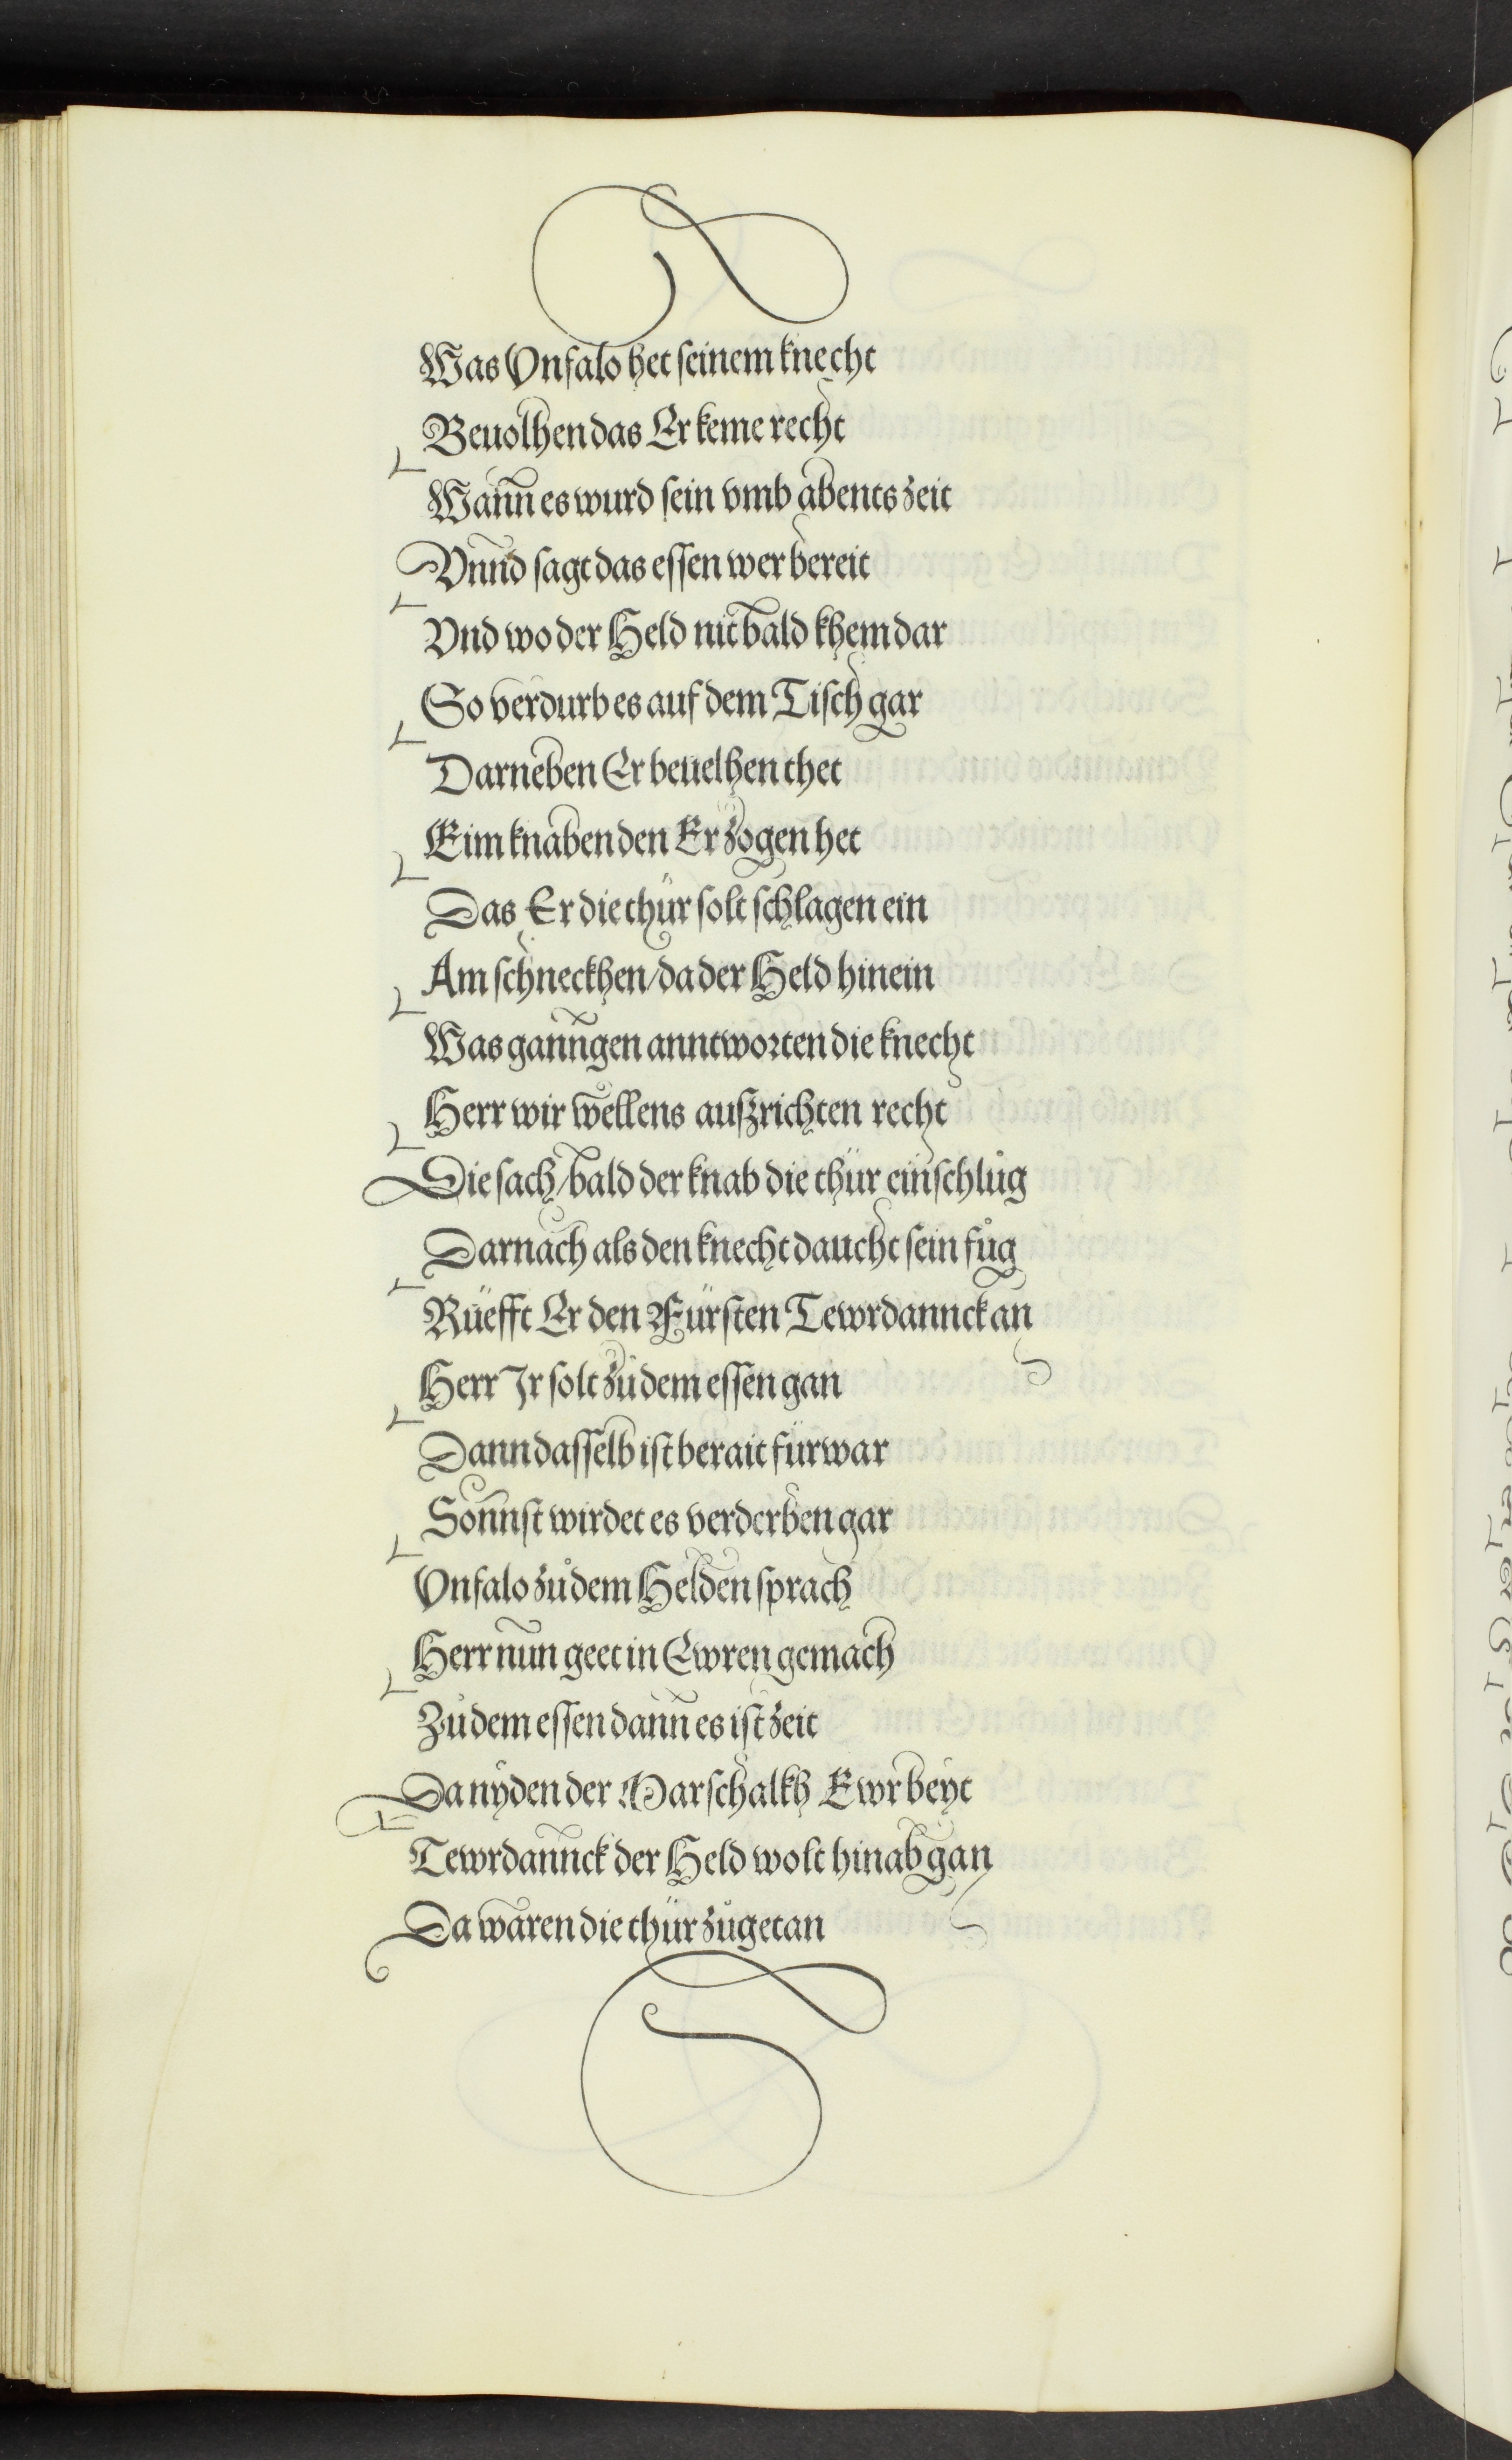 Was Vnfalo het seinem knecht
Beuolhen das Er keme recht
Wann es wurd sein vmb abents zeit
Vnnd sagt das essen wer bereit
Vnd wo der Held nit bald khem dar
So verdurb es auf dem Tisch gar
Darneben Er beuelhen thet
Eim knaben den Er zogen het
Das Er die thür solt schlagen ein
Am schneckhen / da der Held hinein
Was ganngen anntworten die knecht
Herr wir wellens auszrichten recht
Die sach / bald der knab die thür einschlůg
Darnach als den knecht daucht sein fůg
Rüefft Er den Fürsten Tewrdannck an
Herr Jr solt zů dem essen gan
Dann dasselb ist berait fürwar
Sonnst wirdet es verderben gar
Vnfalo zů dem Helden sprach
Herr nun geet in Ewren gemach
Zů dem essen dann es ist zeit
Da nyden der Marschalkh Ewr beyt
Tewrdannck der Held wolt hinab gan
Da waren die thür zůgetan